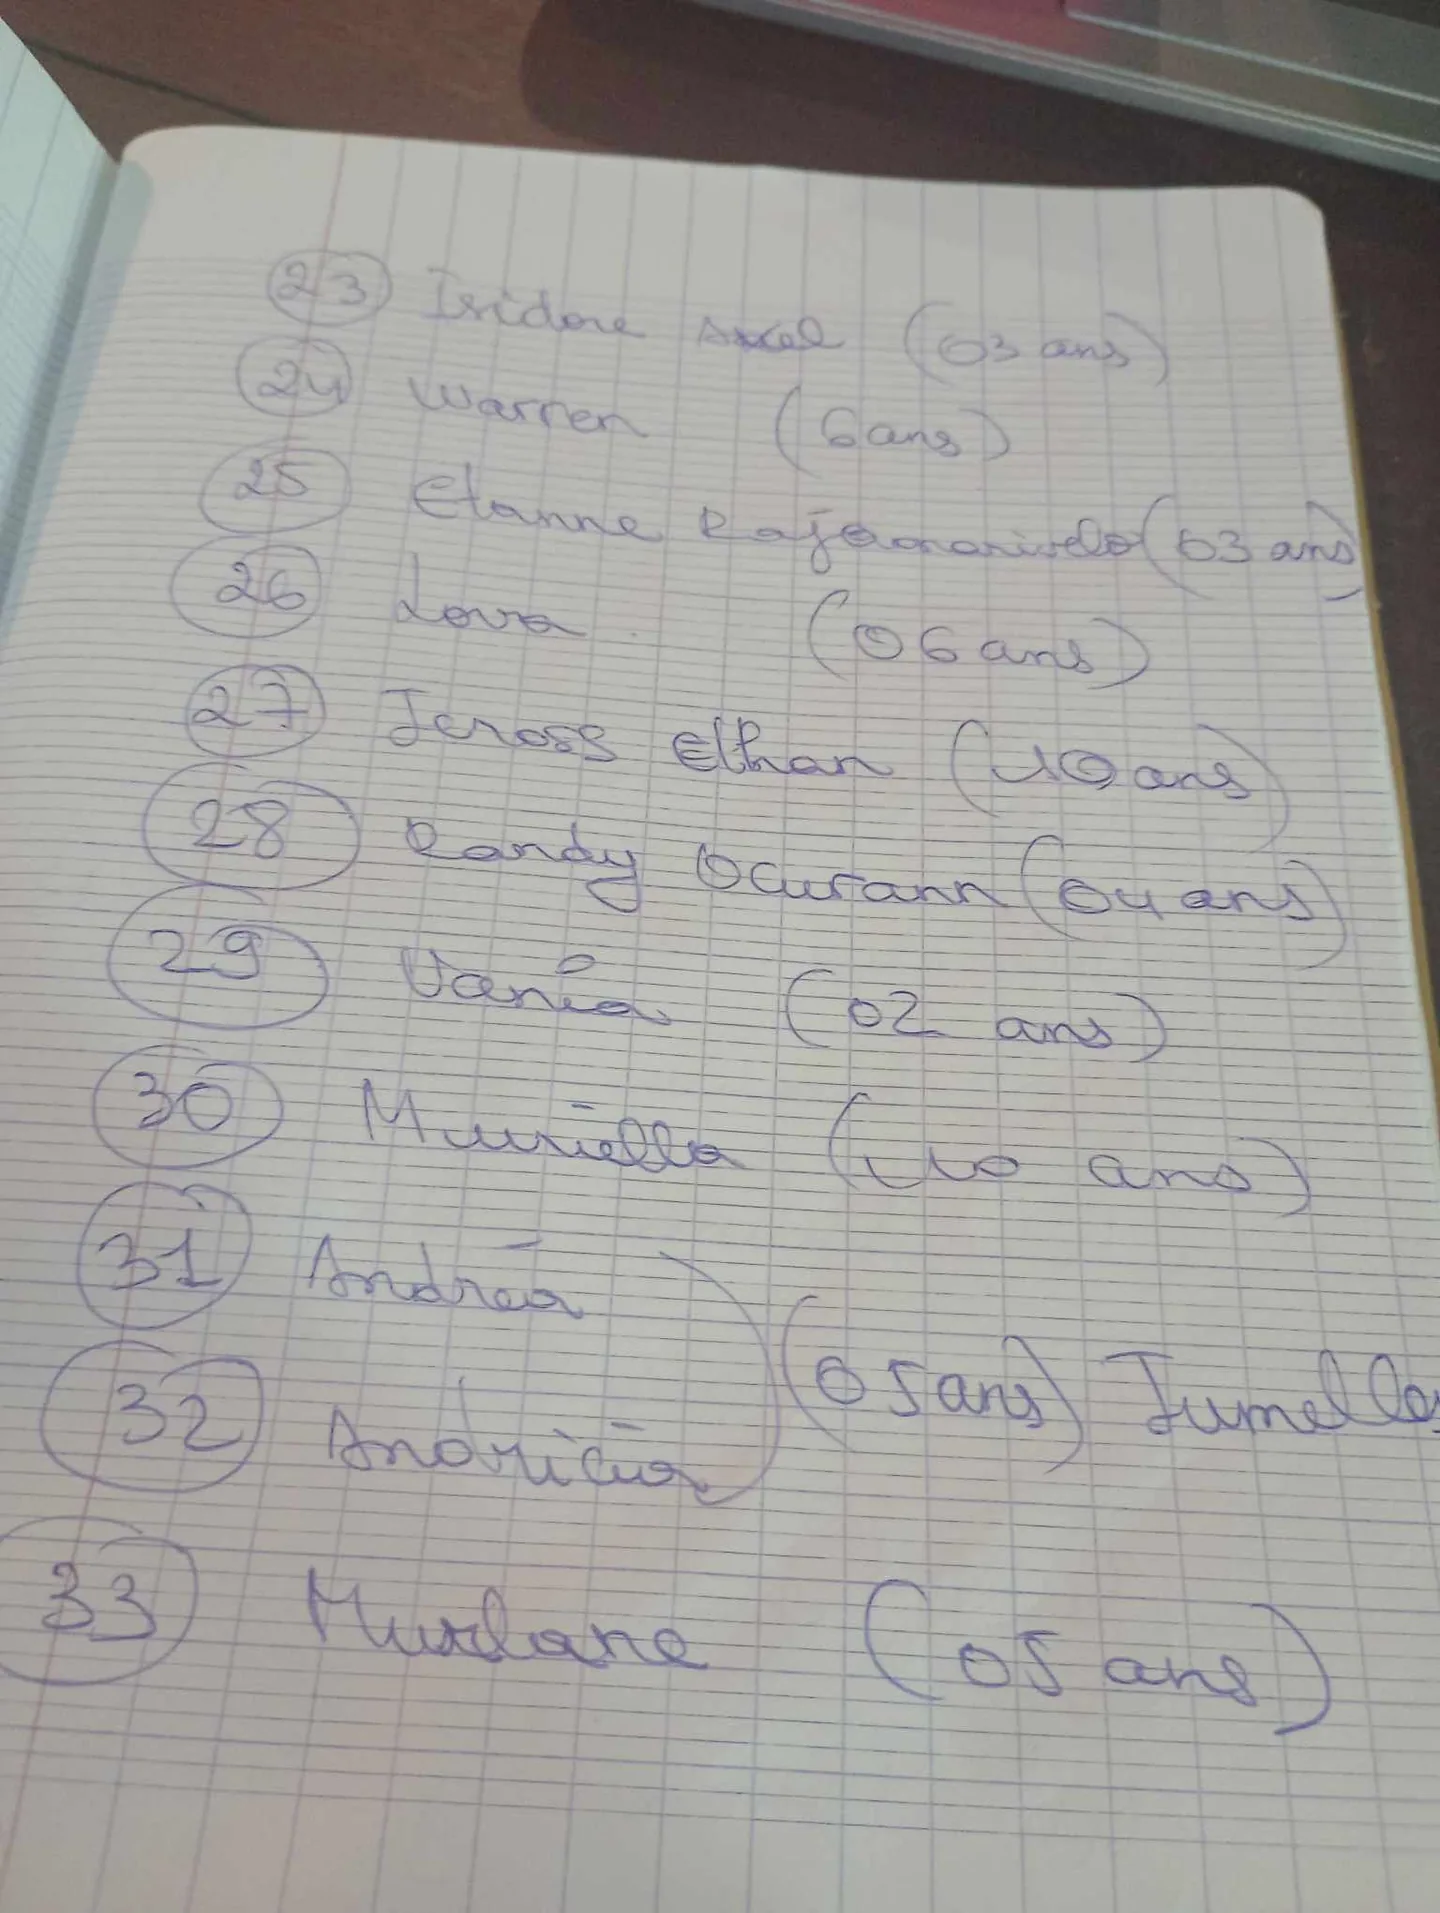 23 Isidore Axel (03 ans)
24 Warren (6 ans)
25 Etanne Rajaonarivelo (03 ans)
26 Lova (06 ans)
27 Jcross Ethan (10 ans)
28 Randy (04 ans)
29 Vania (02 ans)
30 Muriella (10 ans)
31 Andréa
(05 ans) Jumelles
32 Andricia
33 (05 ans)